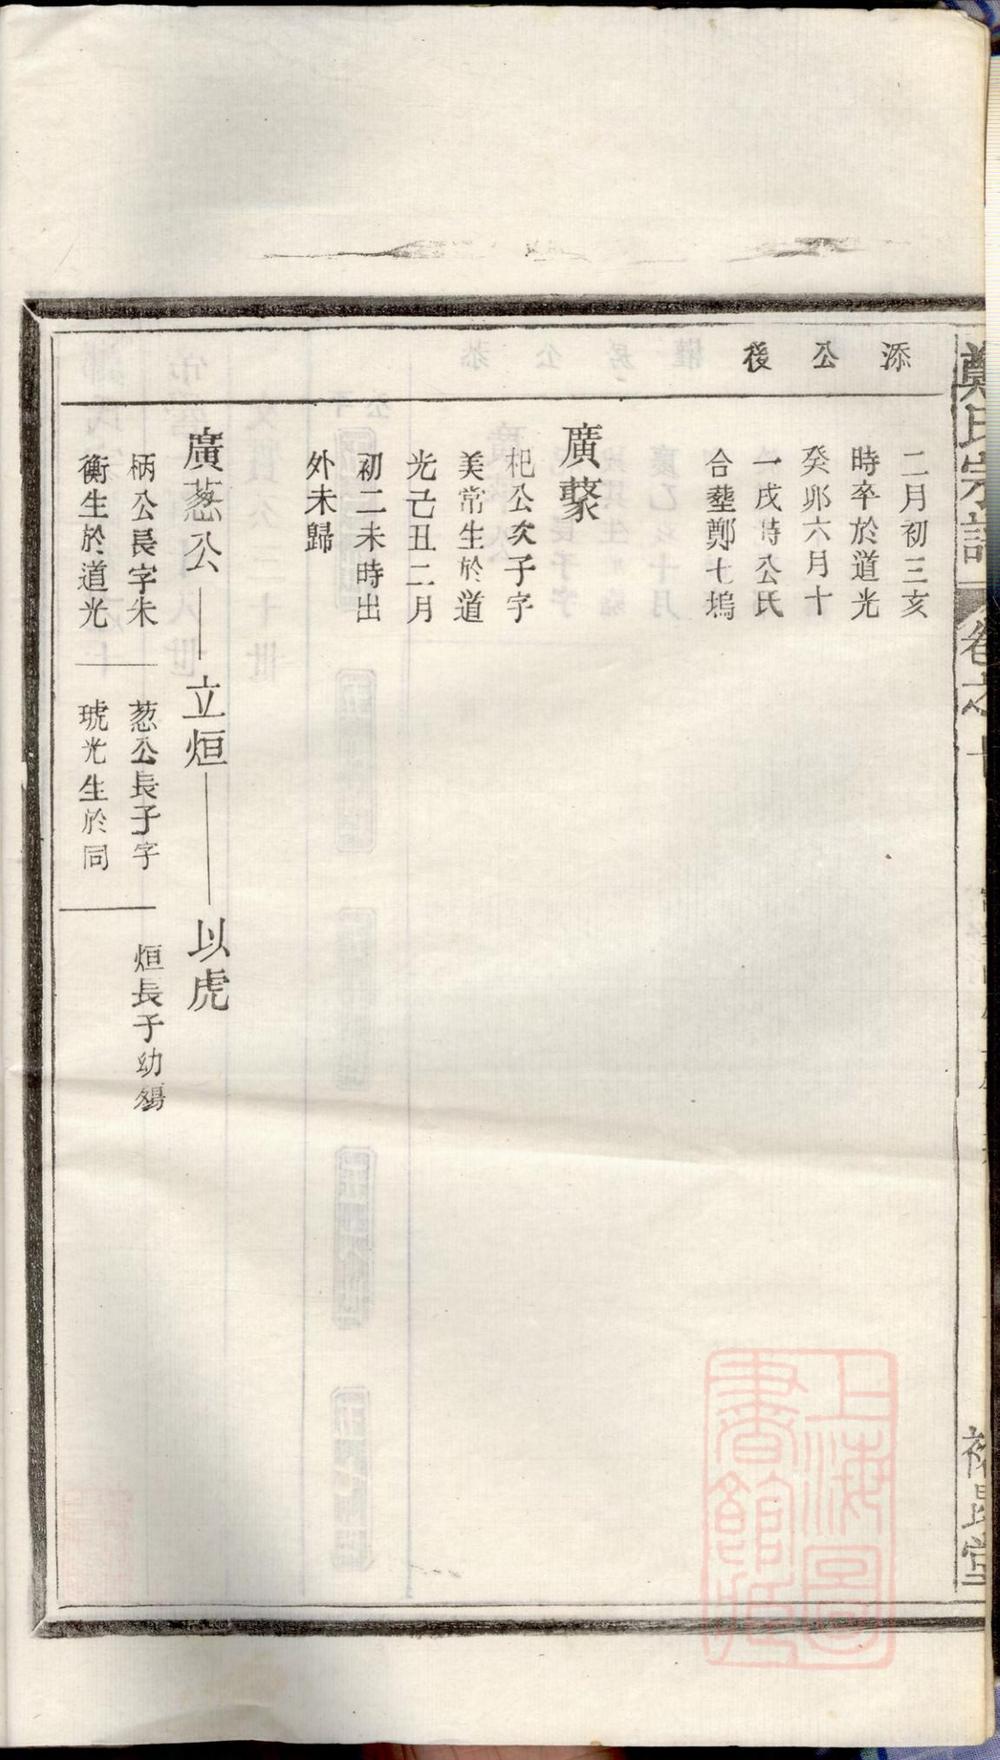 鄭氏宗譜
卷之
添公後
二月初三亥
時卒於道光
癸卯六月十
一戌時公氏
合塟鄭七塢
廣蔉
杞公次子字
美常生於道
光己丑二月
初二未時出
外未歸
廣蒽公
立烜
以虎
柄公長字朱
衡生於道光
蒽公長子字
琥光生於同
烜長子幼殤
上海圖書館藏